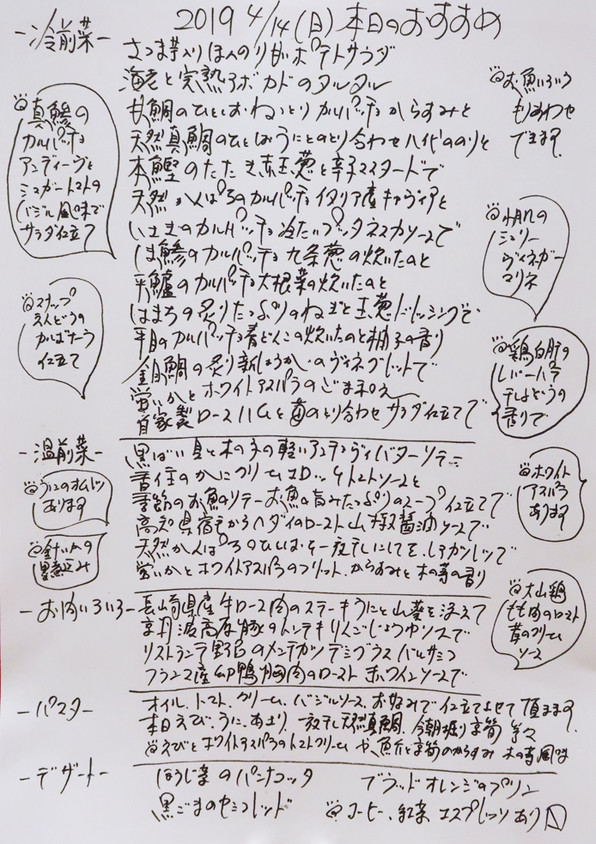 2019 4/14(日)本日のおすすめ
-冷前菜-
さつま芋入りほんのり甘いポテトサラダ
海老と完熟アボカドのタルタル
甘鯛のひとしおねっとりカルパッチョからすみと
天然真鯛のひとしおうにとのとり合わせ八代ののりと
本鰹のたたき赤玉葱と辛子マスタードで
天然かんぱちのカルパッチョイタリア産キャヴィアと
いさきのカルパッチョ冷たいプッタネスカソースで
しま鯵のカルパッチョ九条葱の炊いたのと
平鱸のカルパッチョ大根菜の炊いたのと
はまちの炙りたっぷりのねぎと玉葱ドレッシングで
平目のカルパッチョ春どんこの炊いたのと柚子の香り
金目鯛の炙り新しょうがのヴィネグレットで
蛍いかとホワイトアスパラのごま和え
自家製ロースハムと苺のとり合わせサラダ仕立てで
真鯵の
カルパッチョ
アンディーヴと
シュガートマトの
バジル風味で
サラダ仕立て
スナップ
えんどうの
かばたう
仕立て
お魚いろいろ
もりあわせ
できます。
小肌の
シェリー
ヴィネガー
マリネ
鶏白肝の
レバーパテ
干しぶどうの
香りで
-温前菜-
黒ばい貝と木の子の軽いアンティヴィバターソテー
香住のかにクリームコロッケトマトソースと
季節のお魚のソテーお魚の旨みたっぷりのスープ仕立てで
高知県宿毛からハダイのロースト山椒醤油ソースで
天然かんぱちのひとしおを一夜干しにしてを。レアカンしつで
蛍いかとホワイトアスパラのフリット、からすみと木の芽の香り
うにのオムレツ
あります
針いかの
墨煮込み
ホワイト
アスパラ
あります
-お肉いろいろ-
長崎県産牛ロース肉のステーキうにと山葵を添えて
京丹波高原豚のトンテキりんごしょうゆソースで
リストランテ野呂のメンチカツデミグラスバルサミコ
フランス産鴨胸肉のロースト赤ワインソースで
大山鶏
もも肉のロースト
茸のクリーム
ソース
-パスタ-
オイル、トマト、クリーム、バジルソース、お好みで仕立てさせて頂きます。
本日えび、うに、あさり、一夜干し天然真鯛、今朝堀り京筍 等々
えびとホワイトアスパラのトマトクリームや、魚介と京筍のからすみ木の芽風味
-デザート-
ほうじ茶のパンナコッタ
ブラッドオレンジのプリン
黒ごまのセミフレッド
コーヒー、紅茶、エスプレッソあり